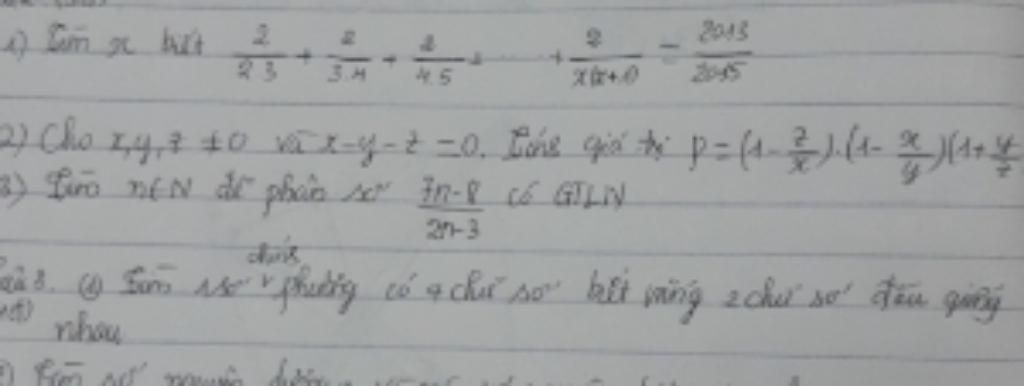 1) Tìm x biết 2/2.3 + 2/3.4 + 2/4.5 + ..... + 2/x(x+1) = 2013/2015
2) Cho x,y,z ≠ 0 và x-y-z = 0. Tính giá trị P = (1 - z/x).(1 - x/y)(1 + y/z
3) Tìm n∈N để phân số 7n-8/2n-3 có GTLN
chính
3. Tìm số phương có 4 chữ số biết rằng 2 chữ số đầu giống
nhau
Tìm số nguyên dương